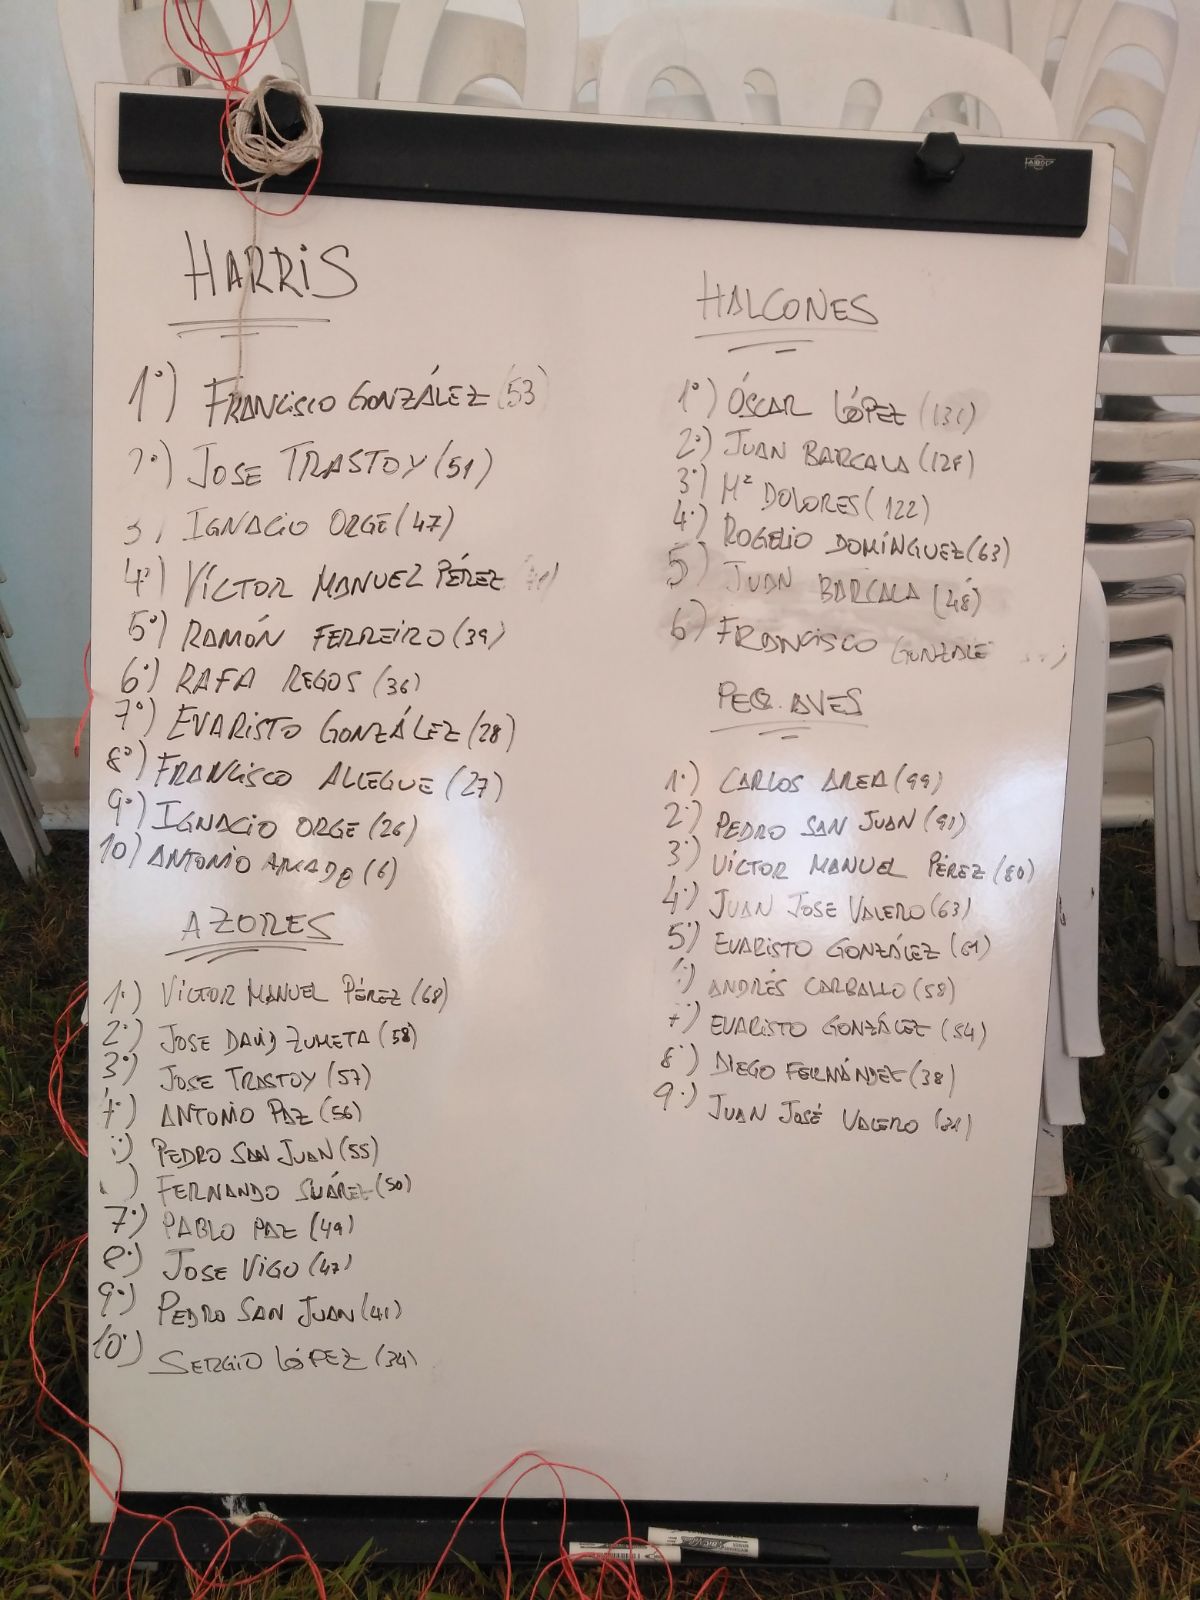 HARRIS
1º) FRANCISCO GONZÁLEZ (53)
2º) JOSE TRASTOY (51)
3) IGNACIO ORGE (47)
4º) VÍCTOR MANUEL PÉREZ
5º) RAMÓN FERREIRO (39)
6º) RAFA REGOS (36)
7º) EVARISTO GONZÁLEZ (28)
8º) FRANCISCO ALLEGUE (27)
9º) IGNACIO ORGE (26)
10) ANTONIO AMADO (6)
AZORES
1º) VÍCTOR MANUEL PÉREZ (68)
2º) JOSE DAVID ZUMETA (58)
3º) JOSE TRASTOY (57)
4º) ANTONIO PAZ (56)
) PEDRO SAN JUAN (55)
) FERNANDO SUÁREZ (50)
7º) PABLO PAZ (49)
8º) JOSE VIGO (47)
9º) PEDRO SAN JUAN (41)
10º) SERGIO LÓPEZ (34)
HALCONES
1º) ÓSCAR LÓPEZ
2º) JUAN BARCALA
3º) Mª DOLORES (122)
4º) ROGELIO DOMÍNGUEZ (63)
5) JUAN BARCALA (48)
6) FRANCISCO GONZALE
PEQ. AVES
1º) CARLOS AREA (99)
2º) PEDRO SAN JUAN (91)
3º) VÍCTOR MANUEL PÉREZ (80)
4º) JUAN JOSE VALERO (63)
5º) EVARISTO GONZÁLEZ (61)
) ANDRÉS CARBALLO (58)
7º) EVARISTO GONZÁLEZ (54)
8º) DIEGO FERNÁNDEZ (38)
9º) JUAN JOSÉ VALERO